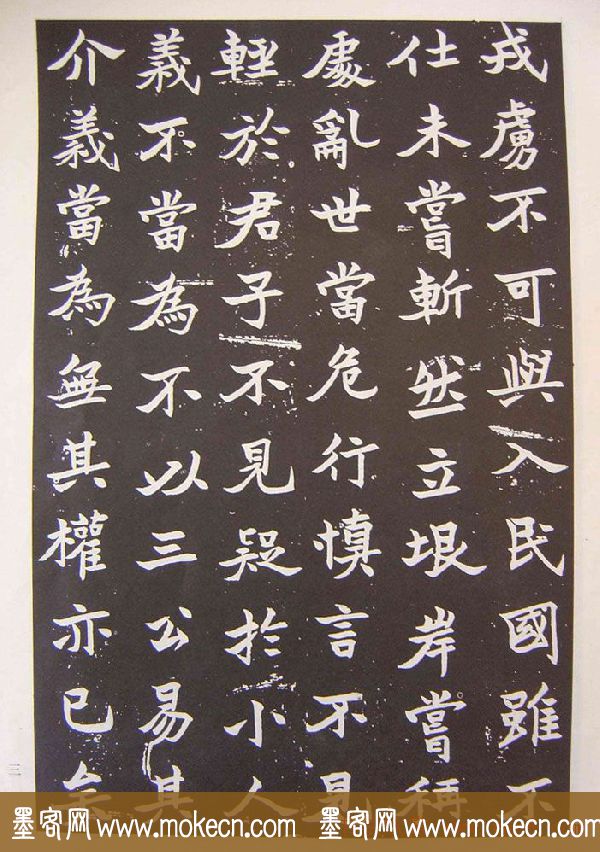 戎虜不可與入民國雖不
仕未嘗斬然立垠岸嘗稱
處亂世當危行慎言不見
輕於君子不見疑於小人
義不當為不以三公易其
介義當為無其權亦已矣
三
墨客网 www.mokecn.com 墨客网 www.mokecn.com